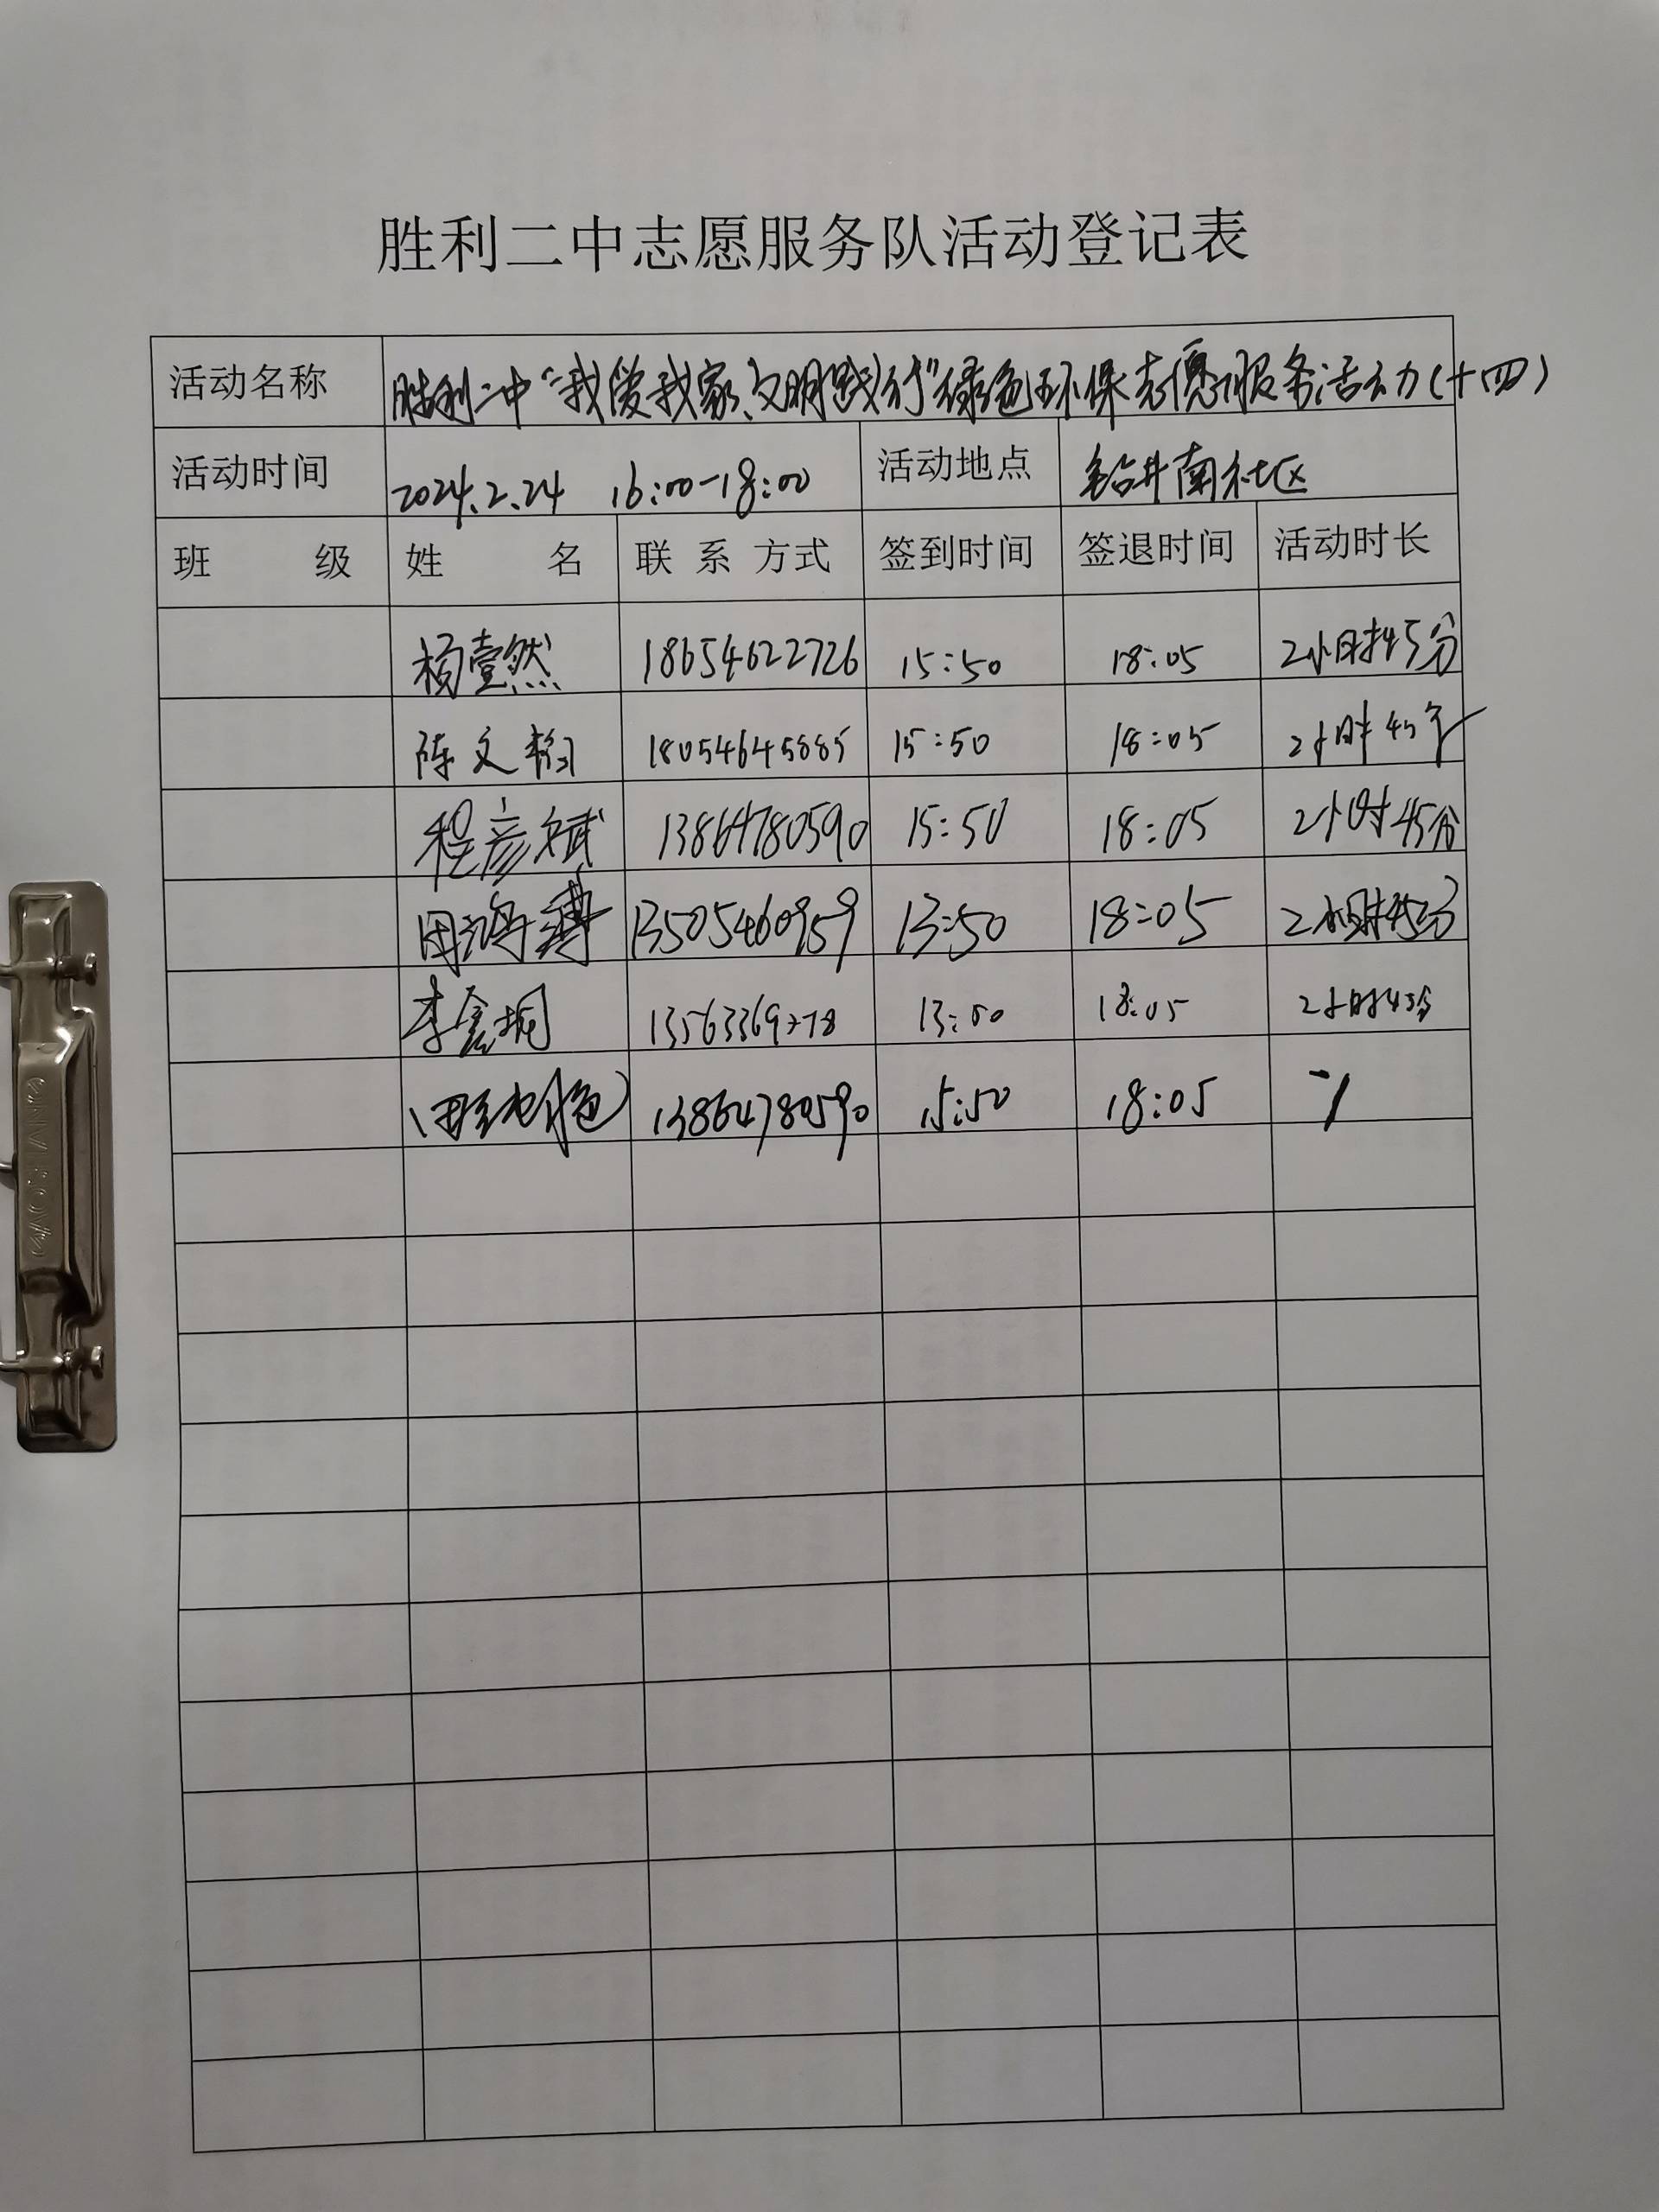 胜利二中志愿服务队活动登记表
活动名称 胜利二中“我爱我家、文明践行”绿色环保志愿服务活动(十四)
活动时间 2024.2.24 16:00-18:00 活动地点 钻井南社区
班 级 姓 名 联 系 方式 签到时间 签退时间 活动时长
杨壹然 18654622726 15:50 18:05 2小时45分
陈文 15:50 18:05 2小时45分
程彦斌 13864780590 15:50 18:05 2小时45分
13505460959 13:50 18:05 2小时45分
李 13563369278 13:50 18:05 2小时45分
13864780590 15:50 18:05